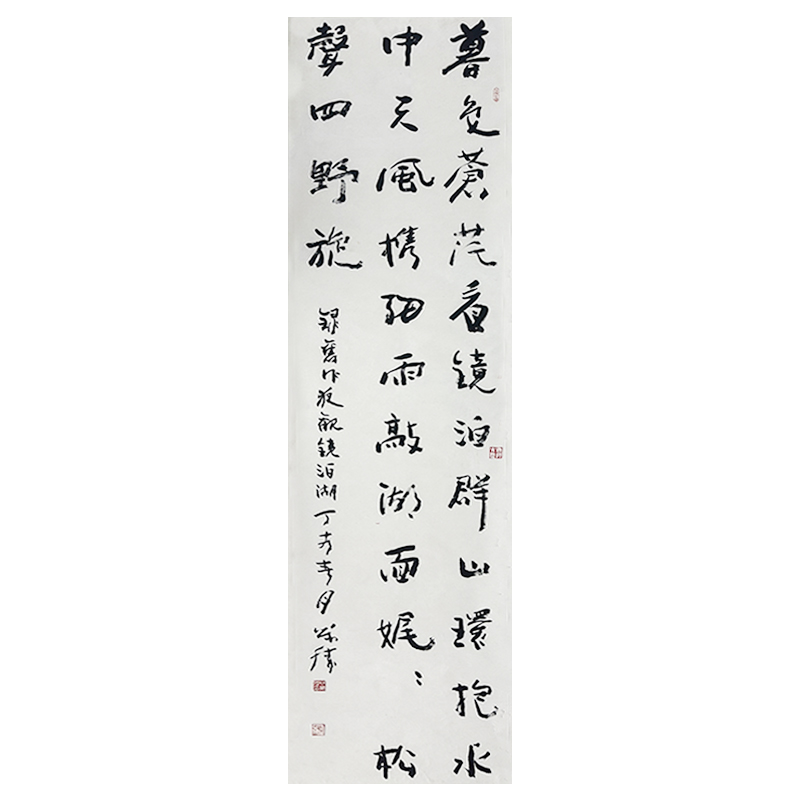 暮色蒼茫看鏡泊群山環抱水
中天風携細雨敲湖面娓々松
聲四野旋
録舊作夜觀鏡泊湖丁亥春月